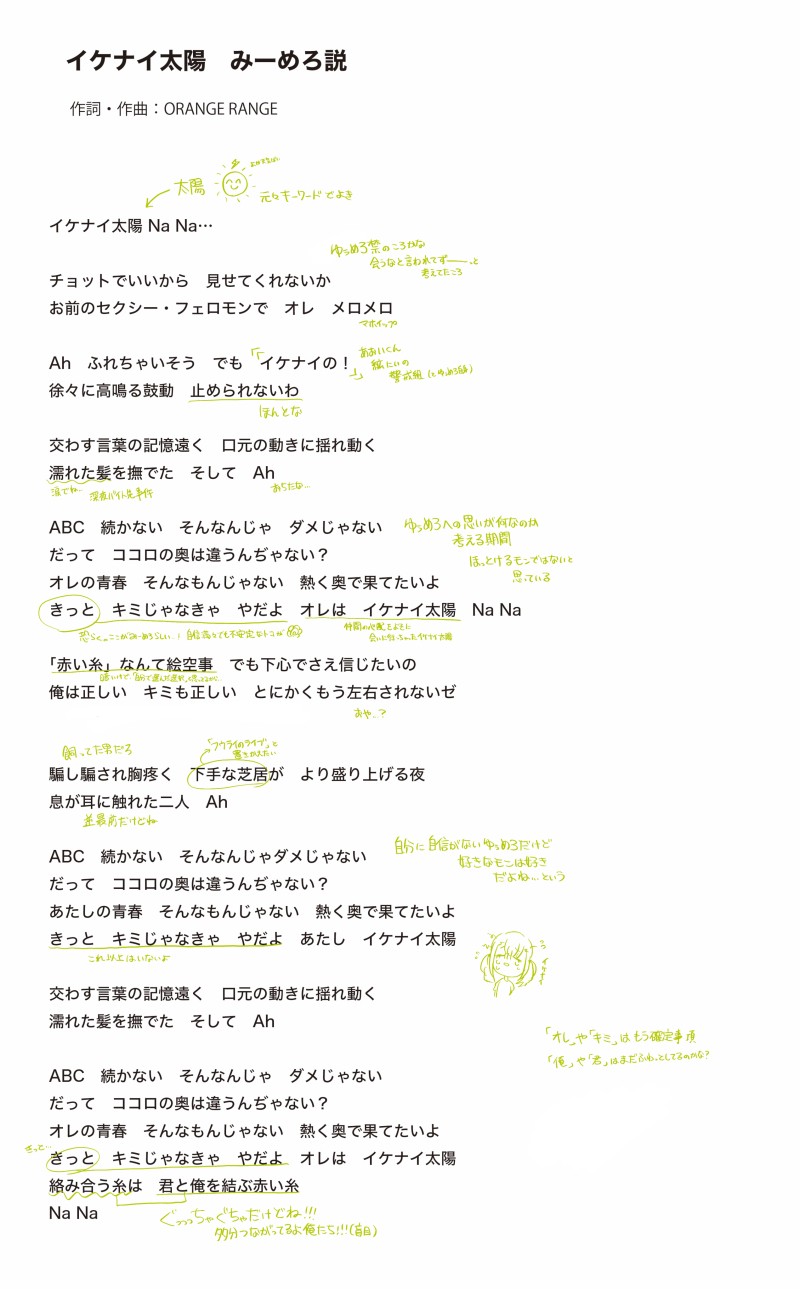 イケナイ太陽　みーめろ説
作詞・作曲：ORANGE RANGE
太陽
元々キーワードでよき
イケナイ太陽 Na Na…
ゆぅめろ禁のころかな
会うなと言われてず――っと
考えてたころ
チョットでいいから　見せてくれないか
お前のセクシー・フェロモンで　オレ　メロメロ
マホイップ
Ah　ふれちゃいそう　でも「イケナイの！」
あおいくん
警戒組
徐々に高鳴る鼓動　止められないわ
ほんとな
交わす言葉の記憶遠く　口元の動きに揺れ動く
濡れた髪を撫でた　そして　Ah
涙でね…　深夜バイト先事件
おちたな…
ABC　続かない　そんなんじゃ　ダメじゃない
ゆぅめろへの思いが何なのか
考える期間
だって　ココロの奥は違うんぢゃない？
ほっとけるモンではないと
思っている
オレの青春　そんなもんじゃない　熱く奥で果てたいよ
きっと　キミじゃなきゃ　やだよ　オレは　イケナイ太陽　Na Na
仲間の心配をよそに
会いに行っちゃったイケナイ太陽
「赤い糸」なんて絵空事　でも下心でさえ信じたいの
俺は正しい　キミも正しい　とにかくもう左右されないゼ
おや…？
飼ってた男だろ
「フウライのライブ」と
書きかえたい
騙し騙され胸疼く　下手な芝居が　より盛り上げる夜
息が耳に触れた二人　Ah
並最前だけどね
ABC　続かない　そんなんじゃダメじゃない
自分に自信がないゆぅめろだけど
好きなモンは好き
だよね…という
だって　ココロの奥は違うんぢゃない？
あたしの青春　そんなもんじゃない　熱く奥で果てたいよ
きっと　キミじゃなきゃ　やだよ　あたし　イケナイ太陽
これ以上はいないよ
交わす言葉の記憶遠く　口元の動きに揺れ動く
濡れた髪を撫でた　そして　Ah
「オレ」や「キミ」はもう確定事項
「俺」や「君」はまだふわっとしてるのかな？
ABC　続かない　そんなんじゃ　ダメじゃない
だって　ココロの奥は違うんぢゃない？
オレの青春　そんなもんじゃない　熱く奥で果てたいよ
きって…
きっと　キミじゃなきゃ　やだよ　オレは　イケナイ太陽
絡み合う糸は　君と俺を結ぶ赤い糸
Na Na
ぐっっっちゃぐちゃだけどね!!!
多分つながってるよ俺たち!!!(盲目)